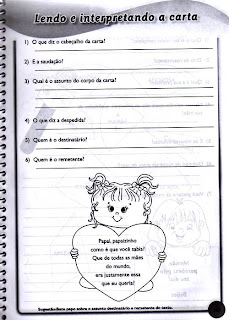 Lendo e interpretando a carta
1) O que diz o cabeçalho da carta?
2) E a saudação?
3) Qual é o assunto do corpo da carta?
4) O que diz a despedida?
5) Quem é o destinatário?
6) Quem é o remetente?
Papai, papaizinho
como é que você sabia?
Que de todas as mães
do mundo,
era justamente essa
que eu queria!
Sugestão: Bate papo sobre o assunto destinatário e remetente do texto.